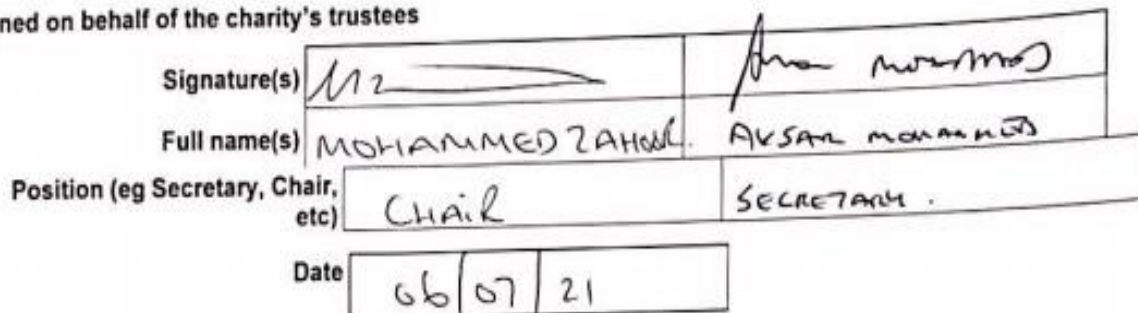 ned on behalf of the charity's trustees
Signature(s)
Full name(s) MOHAMMED ZAHOOR. AVSAR MOHAMMED
Position (eg Secretary, Chair,
etc) CHAIR SECRETARY.
Date 06 07 21